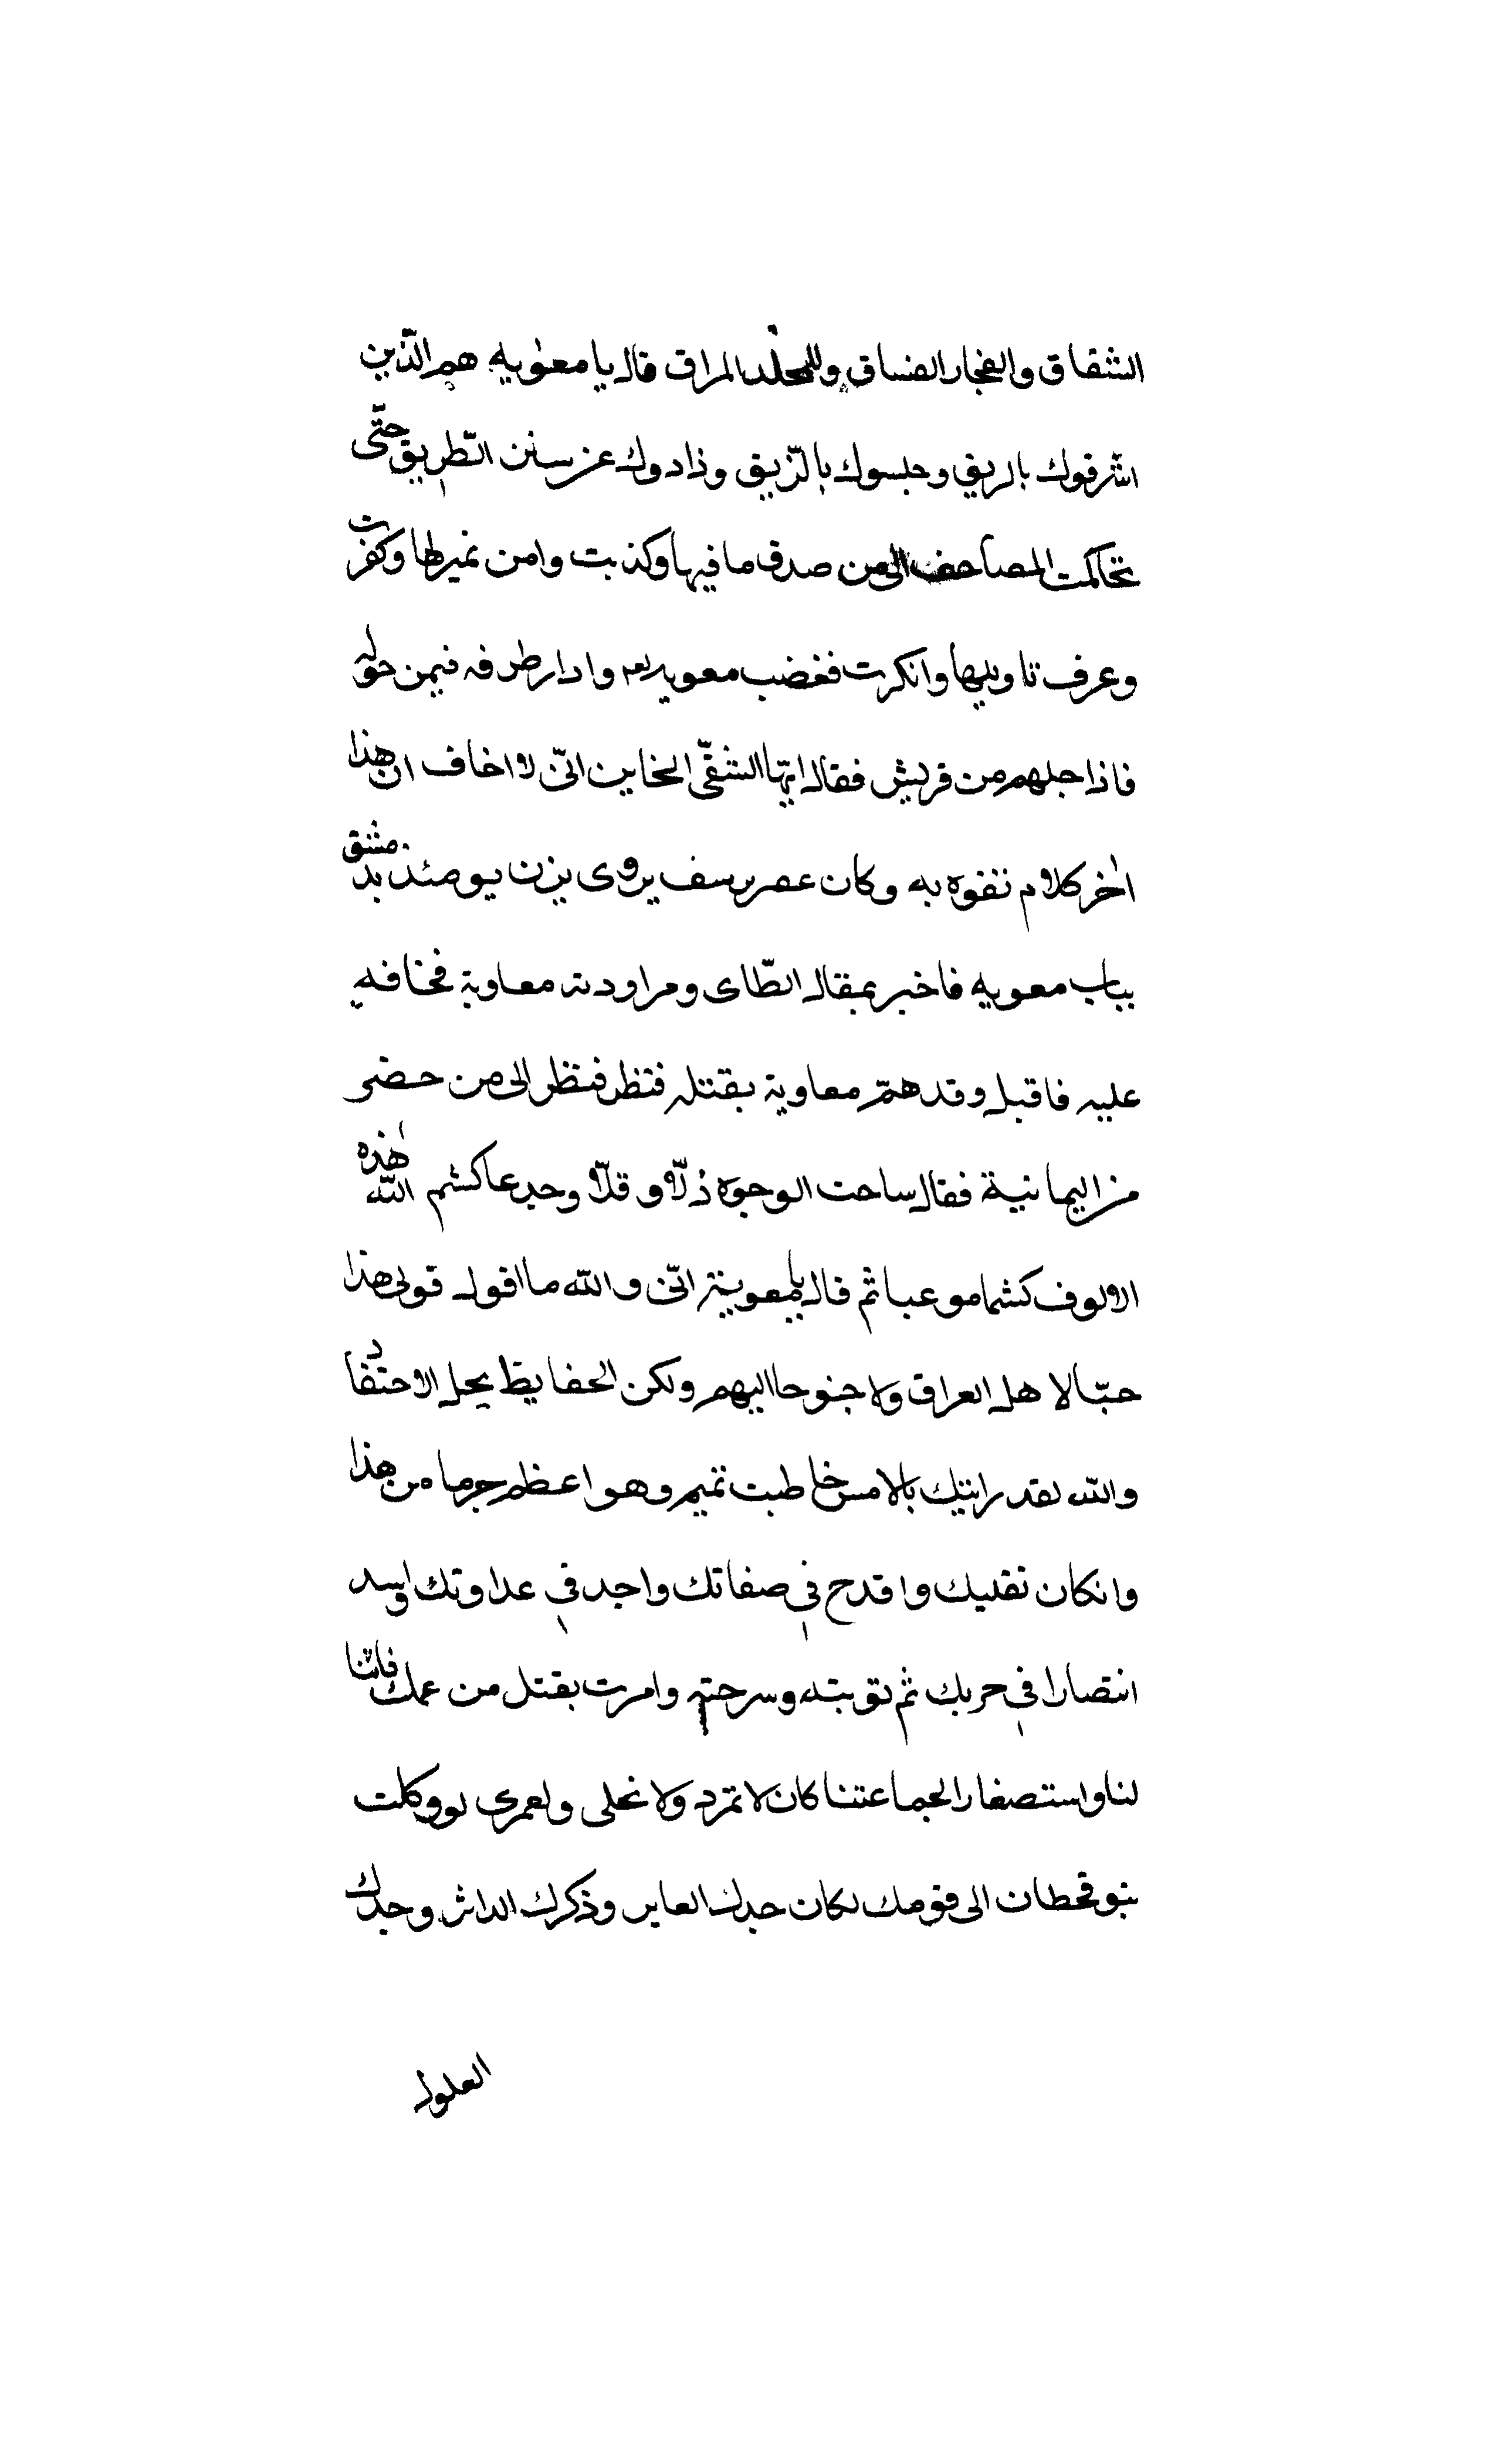 الشقاق والفجار الفساق المراق قال يا معويه هم الذين
اشرقوك بالريق وحبسوك بالزيق وذادوك عن سنن الطريق حتى
تحاكمت المصاحف الى من صدق ما فيها وكذبت وامن وكفرت
وعرف تاويلها وانكرت فغضب معويه وادار طرفه فيمن حوله
فاذا جلهم من قريش فقال ايها الشقي الخاين انى لا اخاف ان هذا
اخر كلام تفوه به وكان يزن يومئذ بدمشق
بباب معويه فاخبر بمقال الطاى ومراودته معاوية فخافه
عليه فاقبل وقد هم معاوية بقتله فنظر الى من حضر
من اليمانية فقال ساحت الوجوه ذلا و قلا وجدعا كشم الله هذه
الانوف كشما موعبا ثم قال يا معوية انى والله ما اقول قولى هذا
حبا لاهل العراق ولا جنوحا اليهم ولكن الحفايظ يحل الاحقاد
والله لقد رايتك بالامس خاطبت تميم وهو اعظم جرما من هذا
وانكان واقدح فى صفاتك واجد فى عداوتك
انتصارا فى حربك ثم وسرحته وامرت بقتل من
لنا واستصغارا لجماعتنا كان لا تمرد ولا نحلى ولعمرى لو وكلت
بنو قحطان الى قومك لكان العاير وذكرك الداثر